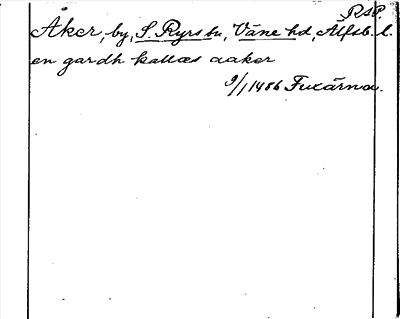 RSP.
Åker, by, S. Ryrs sn, Väne hd, Älfsb. l.
en gardh kallæs aaker
9/1 1486 Fuxärna.